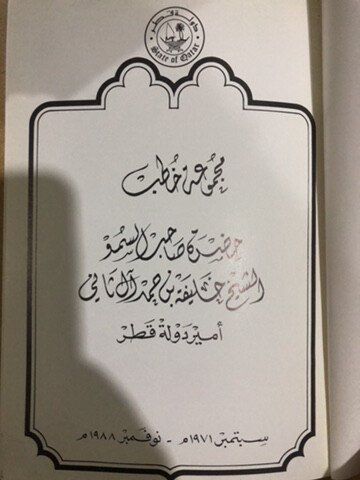 دولة قطر
State of Qatar
مجموعة خطب
حضرة صاحب السمو
الشيخ خليفة بن حمد آل ثاني
أمير دولة قطر
سبتمبر ١٩٧١م - نوفمبر ١٩٨٨م